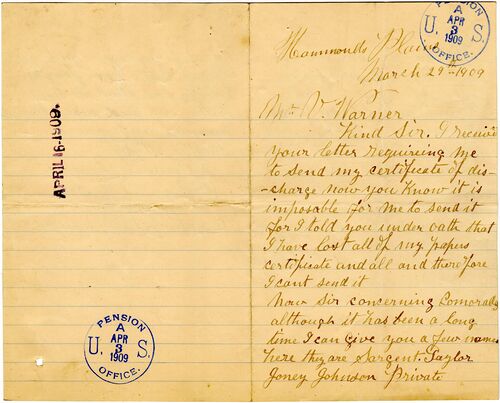 APRIL 16-1909.
PENSION
A
U. APR S.
3
1909
OFFICE.
PENSION
A
U. APR S.
3
1909
OFFICE.
Hammonds Plains
March 29th 1909
Mr V. Warner
Kind Sir. I receive
your letter requireing me
to send my certificate of dis-
-charge now you know it is
imposable for me to send it
for I told you under oath that
I have lost all of my papers
certificate and all and therefore
I cant send it
Now Sir concerning Comorads
although it has been a long
time I can give you a few names
here they are Sargent Taylor
Joney Johnson Private